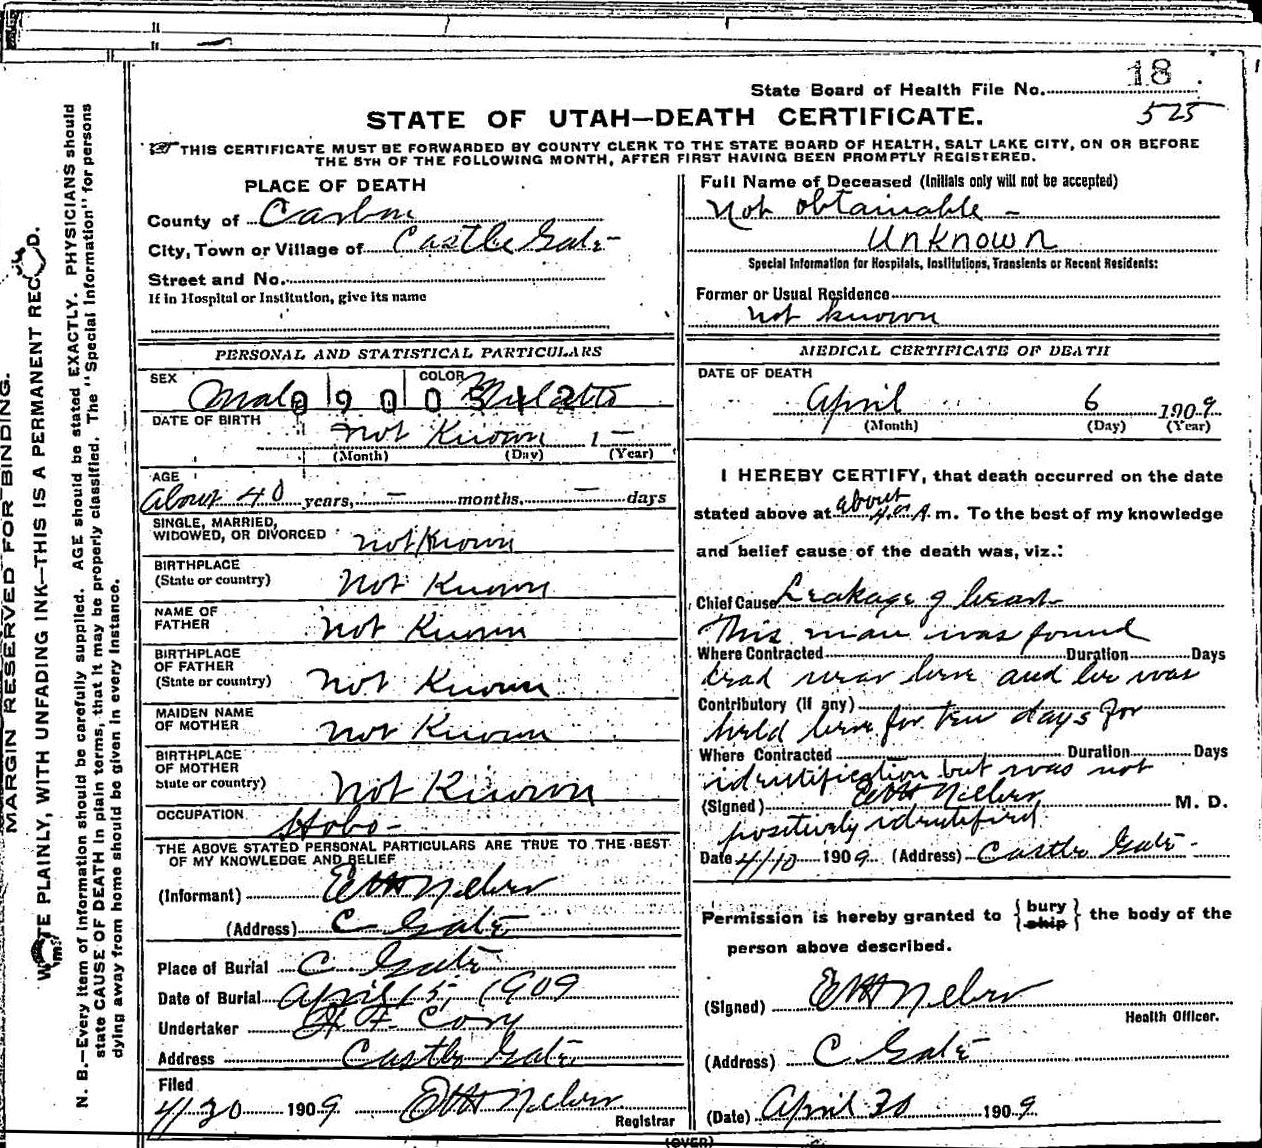 State Board of Health File No. 18
525
STATE OF UTAH—DEATH CERTIFICATE.
THIS CERTIFICATE MUST BE FORWARDED BY COUNTY CLERK TO THE STATE BOARD OF HEALTH, SALT LAKE CITY, ON OR BEFORE
THE 5TH OF THE FOLLOWING MONTH, AFTER FIRST HAVING BEEN PROMPTLY REGISTERED.
MARGIN RESERVED FOR BINDING.
WRITE PLAINLY, WITH UNFADING INK—THIS IS A PERMANENT RECORD.
N. B.—Every item of information should be carefully supplied. AGE should be stated EXACTLY. PHYSICIANS should
state CAUSE OF DEATH in plain terms, that it may be properly classified. The "Special Information" for persons
dying away from home should be given in every instance.
PLACE OF DEATH
County of Carbon
City, Town or Village of Castle Gate
Street and No.
If in Hospital or Institution, give its name
PERSONAL AND STATISTICAL PARTICULARS
SEX Male COLOR Mulatto
0900512
DATE OF BIRTH
Not Known 1 —
(Month) (Day) (Year)
AGE
About 40 years, — months. — days
SINGLE, MARRIED,
WIDOWED, OR DIVORCED not Known
BIRTHPLACE
(State or country) Not Known
NAME OF
FATHER Not Known
BIRTHPLACE
OF FATHER
(State or country) Not Known
MAIDEN NAME
OF MOTHER Not Known
BIRTHPLACE
OF MOTHER
State or country) Not Known
OCCUPATION Hobo -
THE ABOVE STATED PERSONAL PARTICULARS ARE TRUE TO THE BEST
OF MY KNOWLEDGE AND BELIEF
(Informant)
(Address) C Gate
Place of Burial C Gate
Date of Burial April 15, 1909
Undertaker
Address Castle Gate
Filed
4/30 1909
Registrar
Full Name of Deceased (Initials only will not be accepted)
Not obtainable -
Unknown
Special Information for Hospitals, Institutions, Transients or Recent Residents:
Former or Usual Residence
not known
MEDICAL CERTIFICATE OF DEATH
DATE OF DEATH
April 6 1909
(Month) (Day) (Year)
I HEREBY CERTIFY, that death occurred on the date
stated above at about 4 A. m. To the best of my knowledge
and belief cause of the death was, viz.:
Chief Cause Leakage of heart
This man was found
Where Contracted Duration Days
dead near here and he was
Contributory (If any)
held here for ten days for
Where Contracted Duration Days
identification but was not
(Signed) M. D.
positively identified
Date 4/10 1909 (Address) Castle Gate -
Permission is hereby granted to {bury ship} the body of the
person above described.
(Signed)
Health Officer.
(Address) C Gate
(Date) April 30 1909
(OVER)